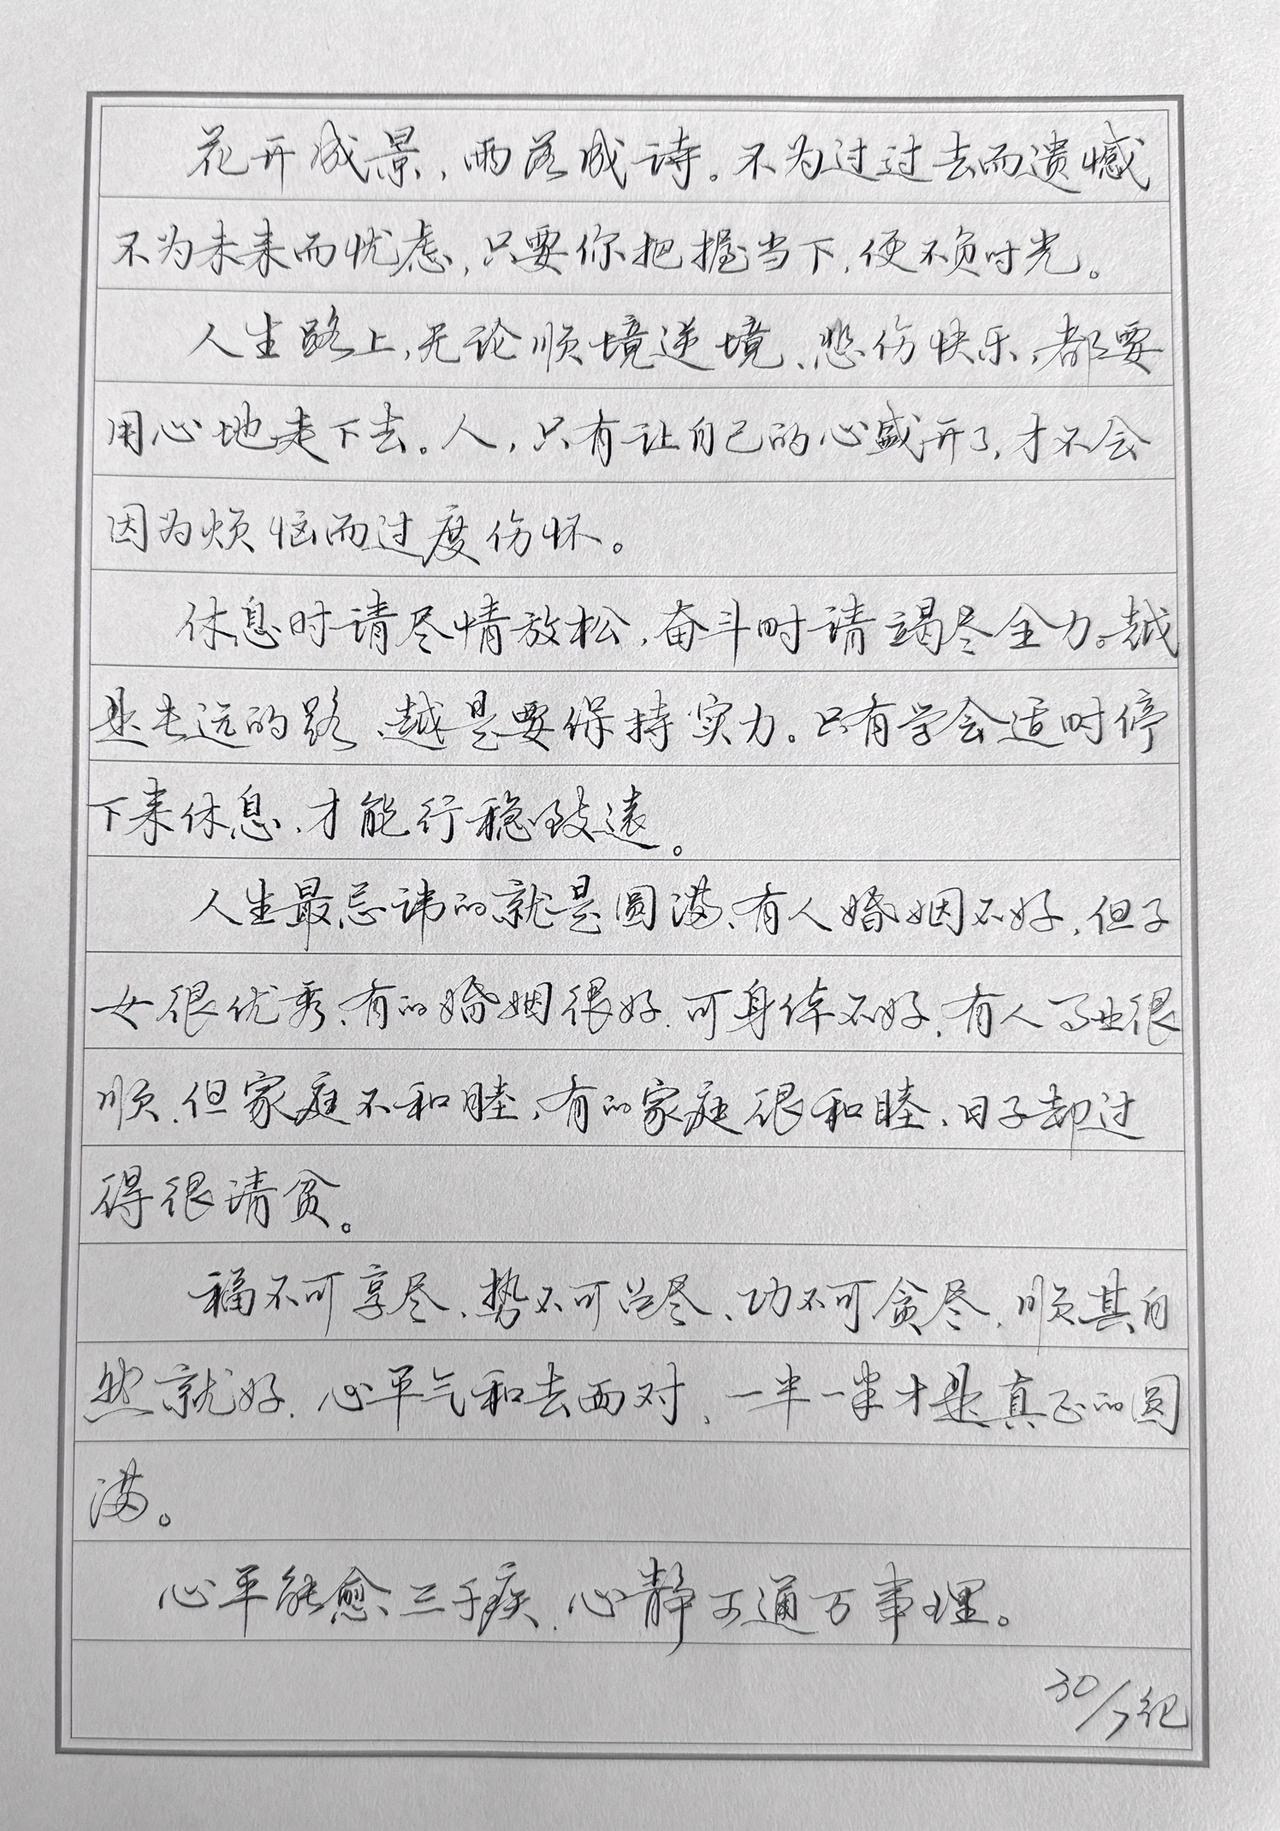 花开成景，雨落成诗。不为过过去而遗憾
不为未来而忧虑，只要你把握当下，便不负时光。
人生路上，无论顺境逆境、悲伤快乐，都要
用心地走下去。人，只有让自己的心盛开了，才不会
因为烦恼而过度伤怀。
休息时请尽情放松，奋斗时请竭尽全力。越
是长远的路、越是要保持实力。只有学会适时停
下来休息，才能行稳致远。
人生最忌讳的就是圆满、有人婚姻不好，但子
女很优秀、有的婚姻很好，可身体不好，有人事业很
顺，但家庭不和睦，有的家庭很和睦，日子却过
得很清贫。
福不可享尽、势不可占尽、功不可贪尽，顺其自
然就好，心平气和去面对，一半一半才是真正的圆
满。
心平能愈三千疾，心静可通万事理。
30/7纪